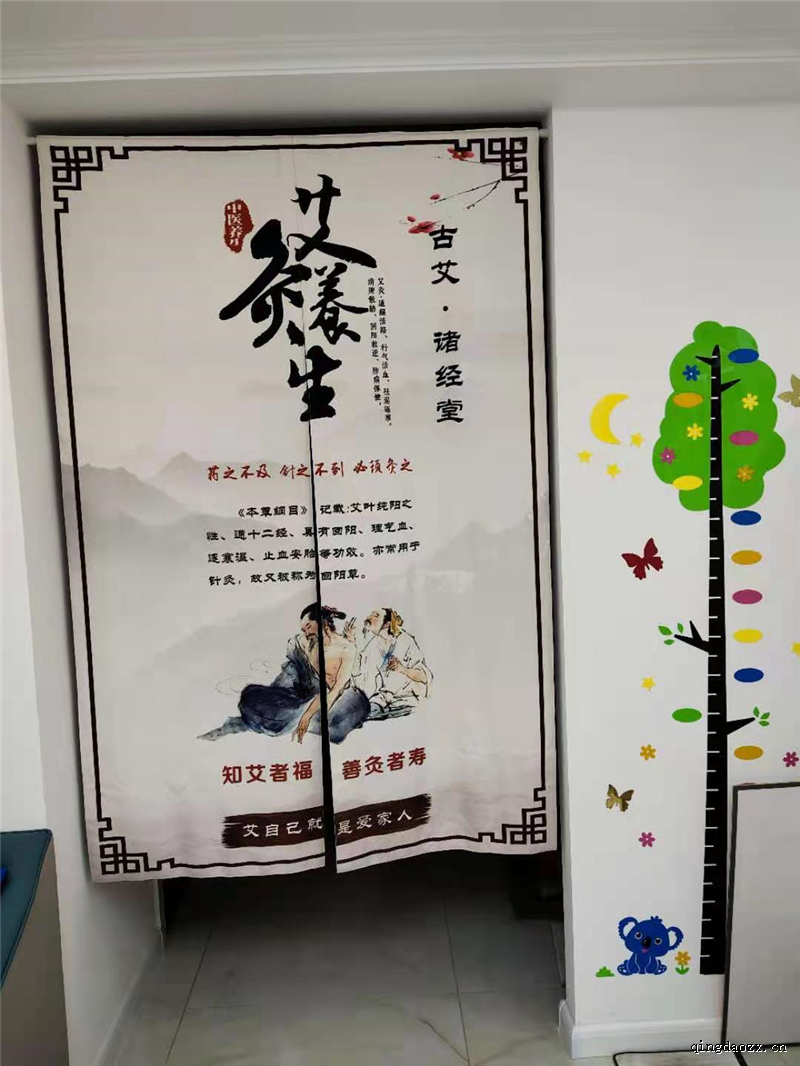 中医养生
艾
灸养
生
艾灸·通经活络、行气活血、祛湿逐寒、
消肿散结、回阳救逆、防病保健。
古艾·诸经堂
药之不及 针之不到 必须灸之
《本草纲目》记载:艾叶纯阳之
性、通十二经、具有回阳、理气血、
逐寒湿、止血安胎等功效。亦常用于
针灸,故又被称为回阳草。
知艾者福 善灸者寿
艾自己就是爱家人
qingdaozz.cn